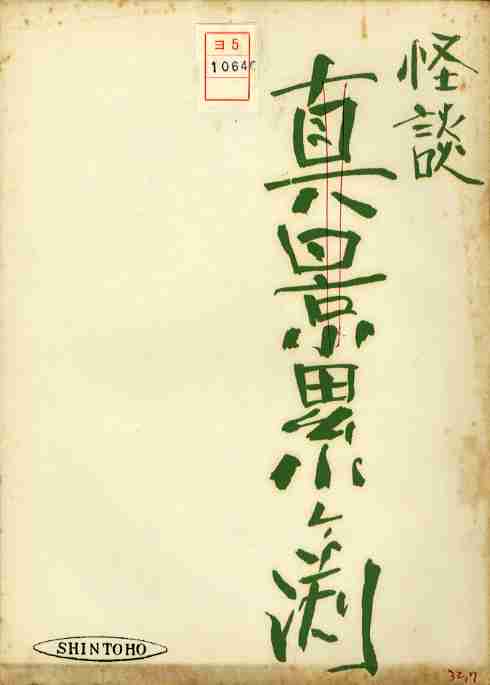 怪談
真景累ヶ渕
ヨ5
1064
SHINTOHO
32,7